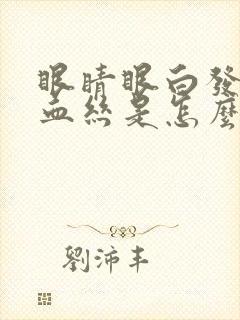 眼睛眼白發
血絲是怎麼
劉沛丰